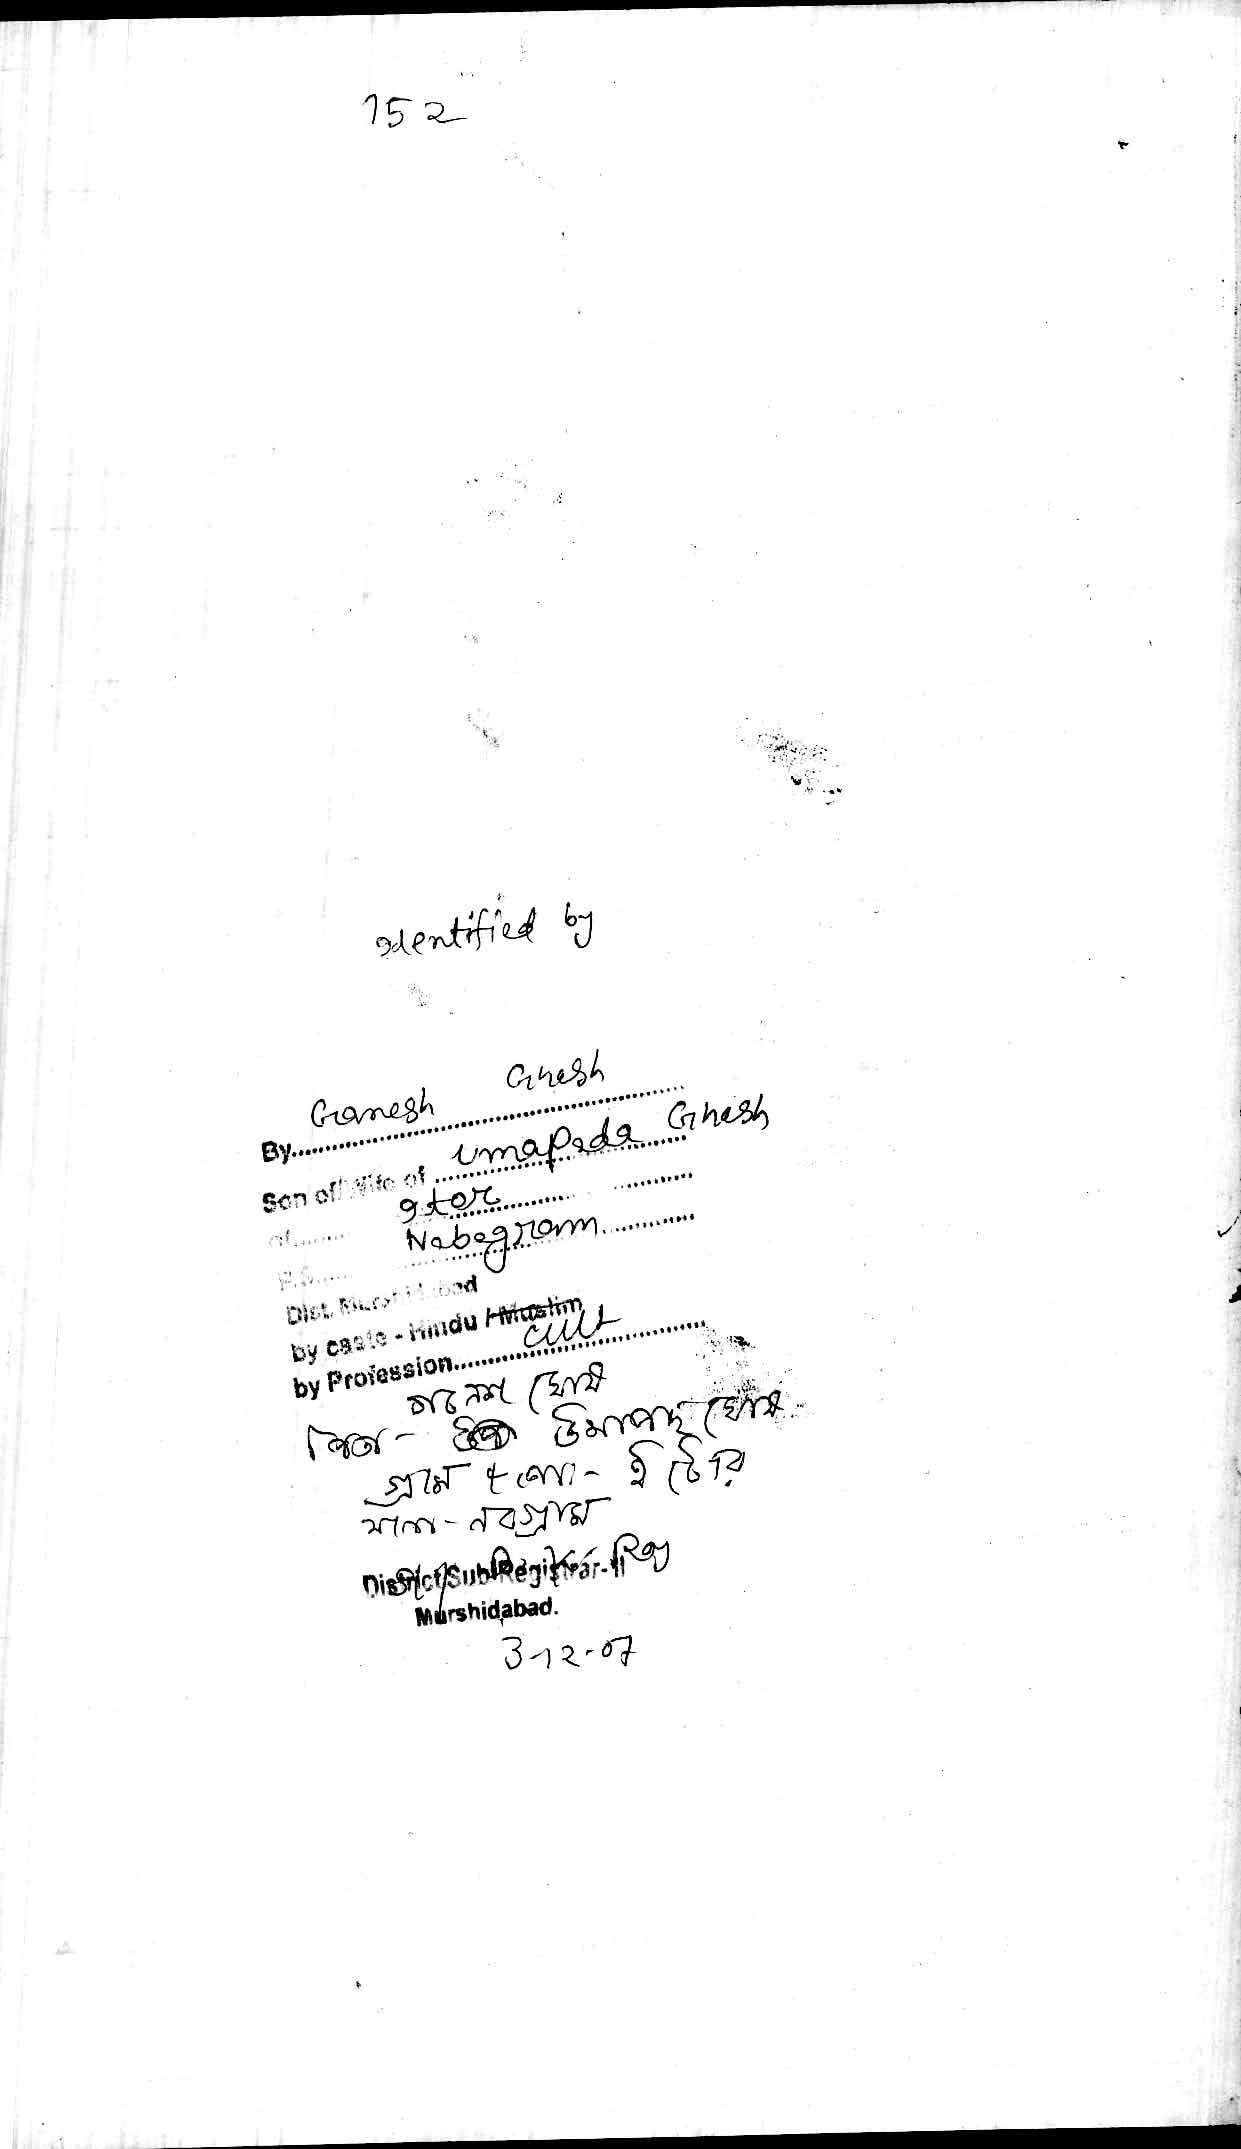 152
Identified by
By Ganesh Ghosh
Son of/Wife of Umapada Ghosh
of Itor
P.S. Nabagram
Dist. Murshidabad
by caste - Hindu / Muslim
by Profession cult
গনেশ ঘোষ
পিতা - উমাপদ ঘোষ
গ্রাম পোঃ - ই টোর
থানা - নবগ্রাম
Roy
District Sub Registrar-II
Murshidabad.
3-12-07